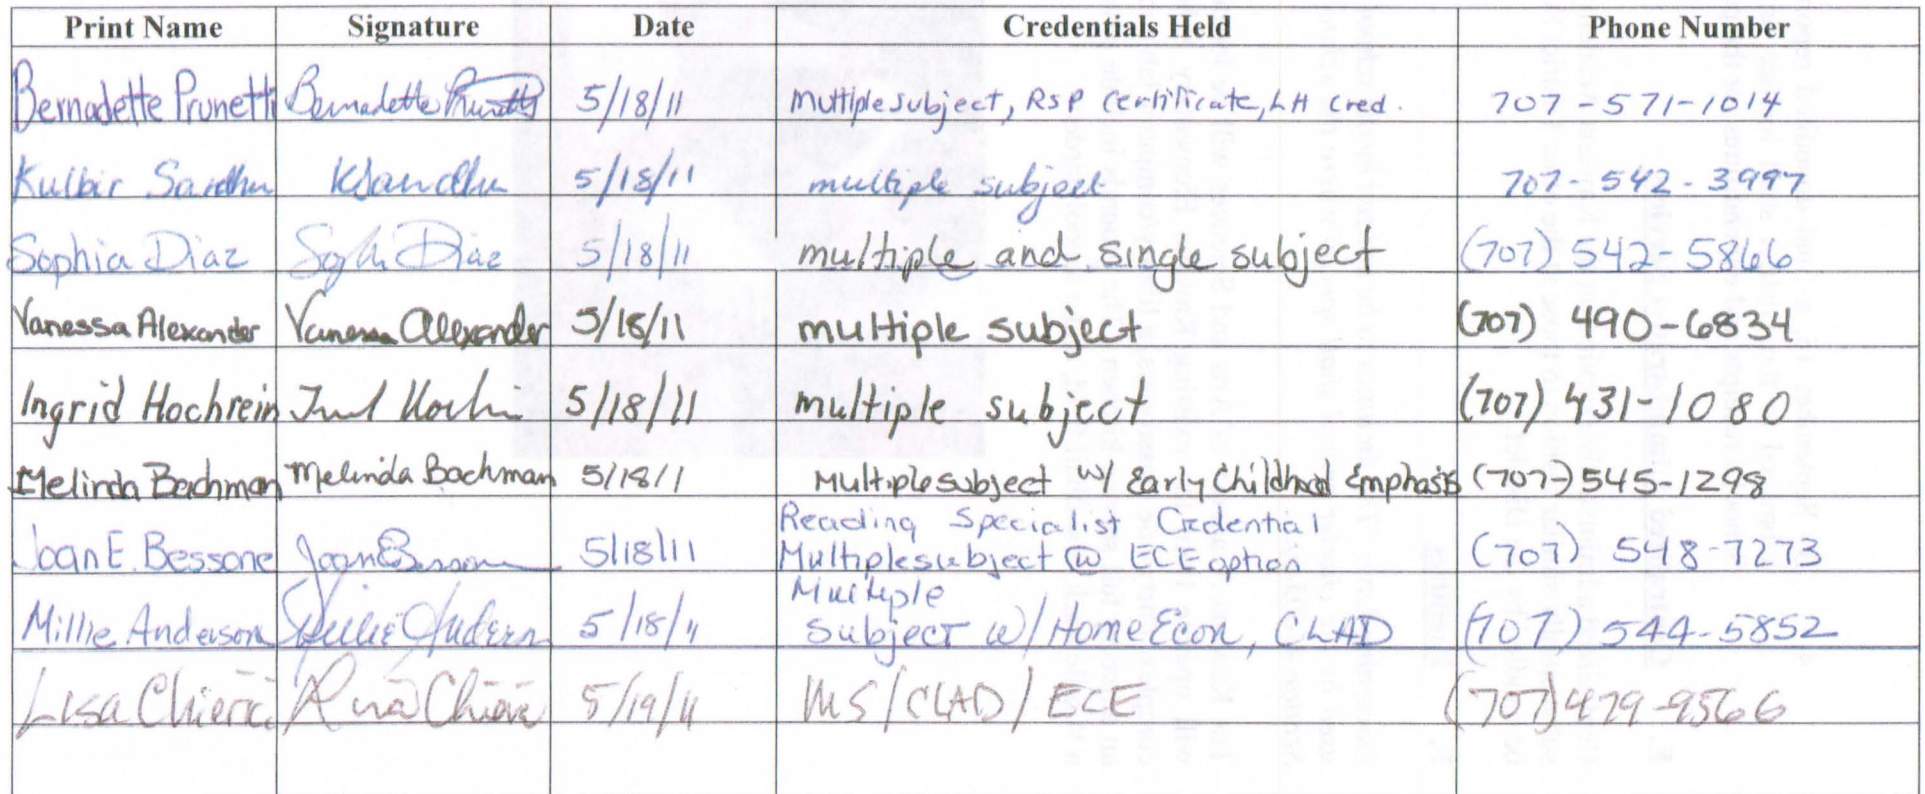 Print Name Signature Date Credentials Held Phone Number
Bernadette Prunetti Bernadette Prunetti 5/18/11 Multiple subject, RSP Certificate, LH Cred. 707-571-1014
Kulbir Sandhu KSandhu 5/18/11 multiple subject 707-542-3997
Sophia Diaz Sophia Diaz 5/18/11 multiple and single subject (707) 542-5866
Vanessa Alexander Vanessa Alexander 5/18/11 multiple subject (707) 490-6834
Ingrid Hochrein 5/18/11 multiple subject (707) 431-1080
Melinda Bachman Melinda Bachman 5/18/1 Multiple subject w/ Early Childhood Emphasis (707) 545-1298
Reading Specialist Credential
Joan E. Bessone Joan E Bessone 5/18/11 Multiple subject @ ECE option (707) 548-7273
Multiple
Millie Anderson Millie Anderson 5/18/11 Subject w/ Home Econ, CLAD (707) 544-5852
Lisa Chierici 5/19/11 MS/CLAD/ECE (707) 479-9566